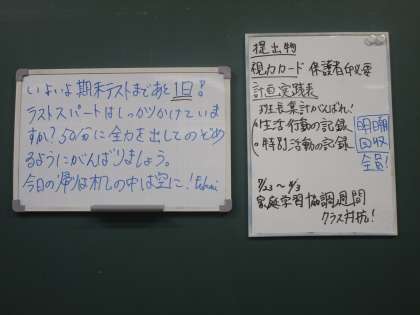 いよいよ期末テストまであと1日!
ラストスパートはしっかりかけていま
すか?50分に全力を出してのぞめ
るようにがんばりましょう。
今日の帰りは机の中は空に!
提出物
視力カード 保護者印必要
計画実践表
班長集計がんばれ!
・生活行動の記録
・特別活動の記録
明日朝
回収
全員!
家庭学習協調週間
クラス対抗!